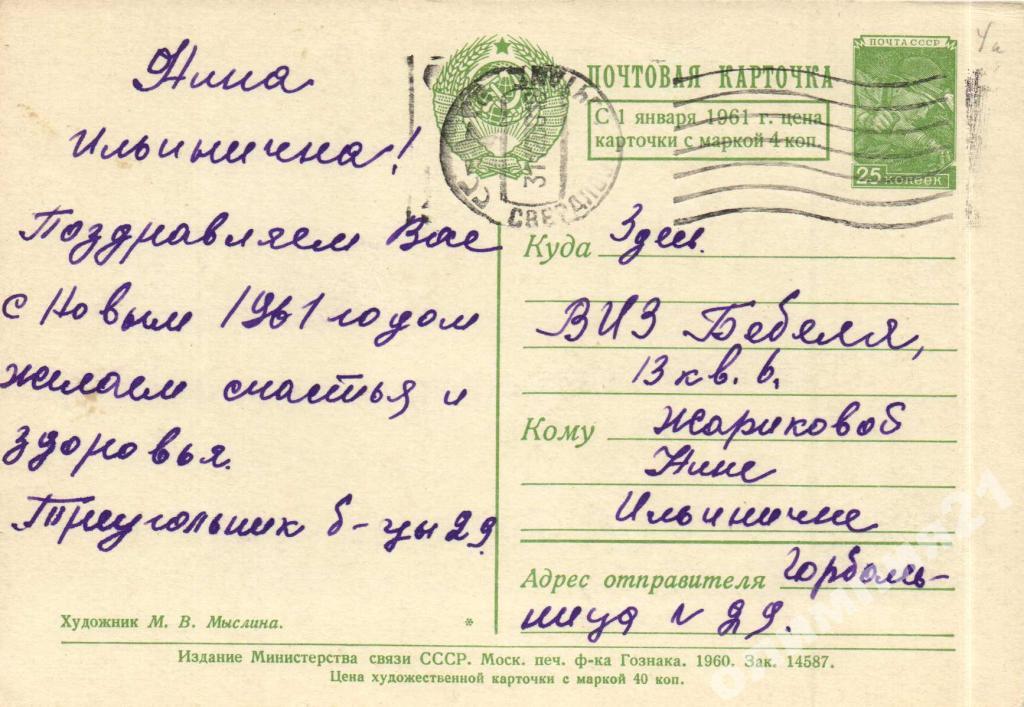 Нина
Ильинична!
Поздравляем Вас
с Новым 1961 годом
желаем счастья и
здоровья.
Треугольник б-цы 29
Художник М. В. Мыслина.
*
ПОЧТОВАЯ КАРТОЧКА
С 1 января 1961 г. цена
карточки с маркой 4 коп.
ПОЧТА СССР
25 копеек
4а
31
СВЕРДЛОВСК
Куда Здесь.
ВИЗ Бебеля,
13 кв. 6,
Кому Жариковой
Нине
Ильиничне
Адрес отправителя Горболь-
ница № 29.
Издание Министерства связи СССР. Моск. печ. ф-ка Гознака. 1960. Зак. 14587.
Цена художественной карточки с маркой 40 коп.
олимпия21